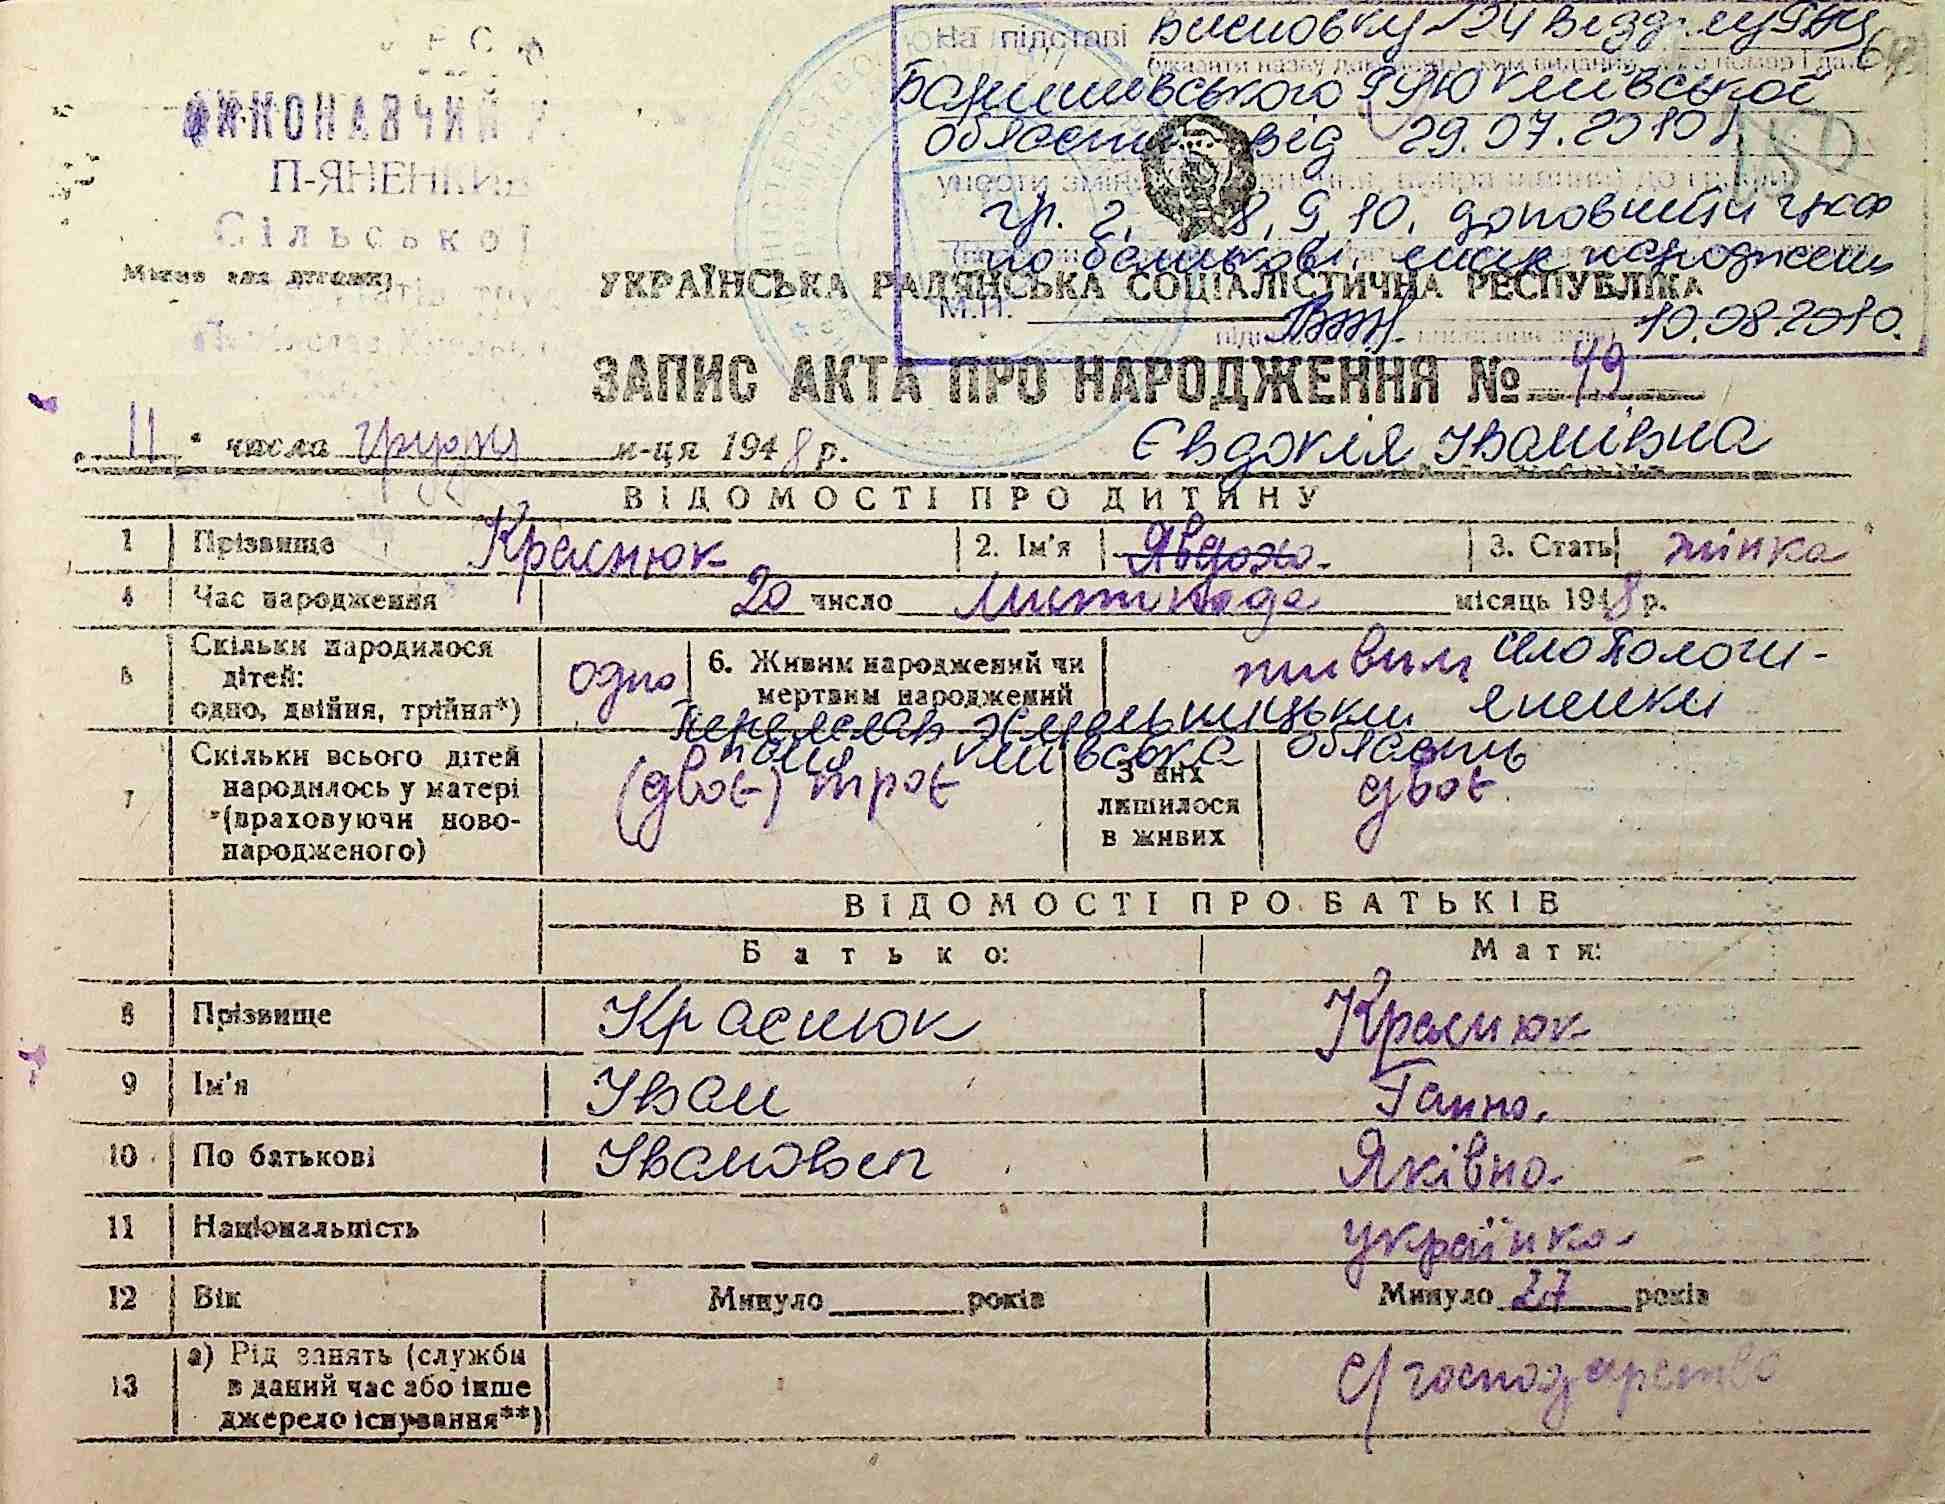 На підставі Висновку 124 Відділу РАЦС
(вказати назву документа, ким виданий, його номер і дата)
Баришівського РУЮ Київської
області від 29.07.2010 р.
унести зміни
гр. 2, 8, 9, 10, доповнити граф
по батькові, місце народжень
М.П. 10.08.2010.
ВИКОНАВЧИЙ
П-ЯНЕНКИВ
Сільської
Місце для штампу
УКРАЇНСЬКА РАДЯНСЬКА СОЦІАЛІСТИЧНА РЕСПУБЛІКА
ЗАПИС АКТА ПРО НАРОДЖЕННЯ № 49
"11" числа грудня м-ця 1948 р. Євдокія Іванівна
ВІДОМОСТІ ПРО ДИТИНУ
1 Прізвище Краснюк 2. Ім'я Явдоха. 3. Стать жінка
4 Час народження 20 число листопада місяць 1948 р.
5 Скільки народилося дітей: одно, двійня, трійня*) одно 6. Живим народжений чи мертвим народжений живим село Пологи-
Яненки Переяслав-Хмельницький
район Київська область
7 Скільки всього дітей народилось у матері (враховуючи новонародженого) (двоє) троє З них лишилося в живих двоє
ВІДОМОСТІ ПРО БАТЬКІВ
Батько: Мати:
8 Прізвище Краснюк Краснюк
9 Ім'я Іван Ганна.
10 По батькові Іванович Яківна.
11 Національність українка.
12 Вік Минуло ____ років Минуло 27 років
13 а) Рід занять (служби в даний час або інше джерело існування**) с/господарство